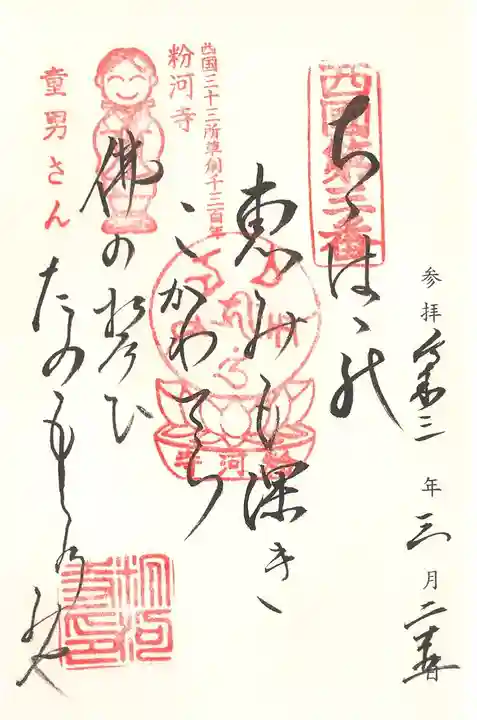 参拝 令和三年三月二十五日
西国第三番
ちゝはゝの
恵みも深き
こかわてら
佛の誓ひ
たのもしの身や
西国三十三所草創千三百年
粉河寺
童男さん
粉河寺
粉河寺印